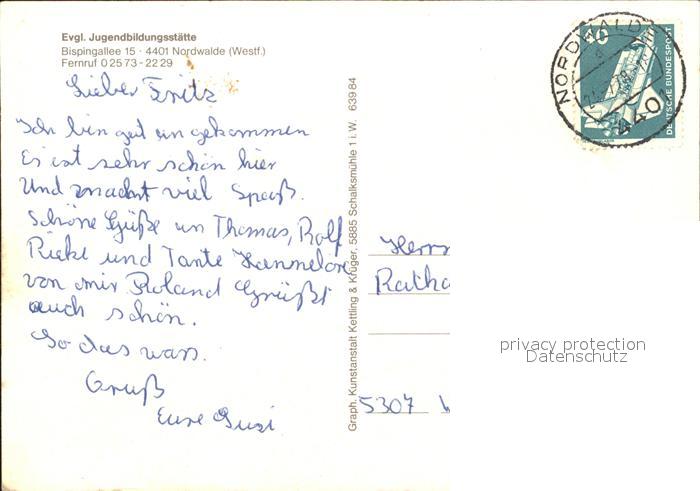 Evgl. Jugendbildungsstätte
Bispingallee 15 · 4401 Nordwalde (Westf.)
Fernruf 0 25 73 - 22 29
Lieber Fritz
Ich bin gut an gekommen
Es ist sehr schön hier
Und macht viel Spaß.
Schöne Güße an Thomas, Rolf
Rieke und Tante Hannelore
von mir Roland Grüßt
auch schön.
So das wars.
Gruß
Eure Susi
Graph. Kunstanstalt Kettling & Krüger, 5885 Schalksmühle 1 i. W. 639 84
NORDWALDE
440
40
DEUTSCHE BUNDESPOST
Herrn
Ratha
5307
privacy protection
Datenschutz